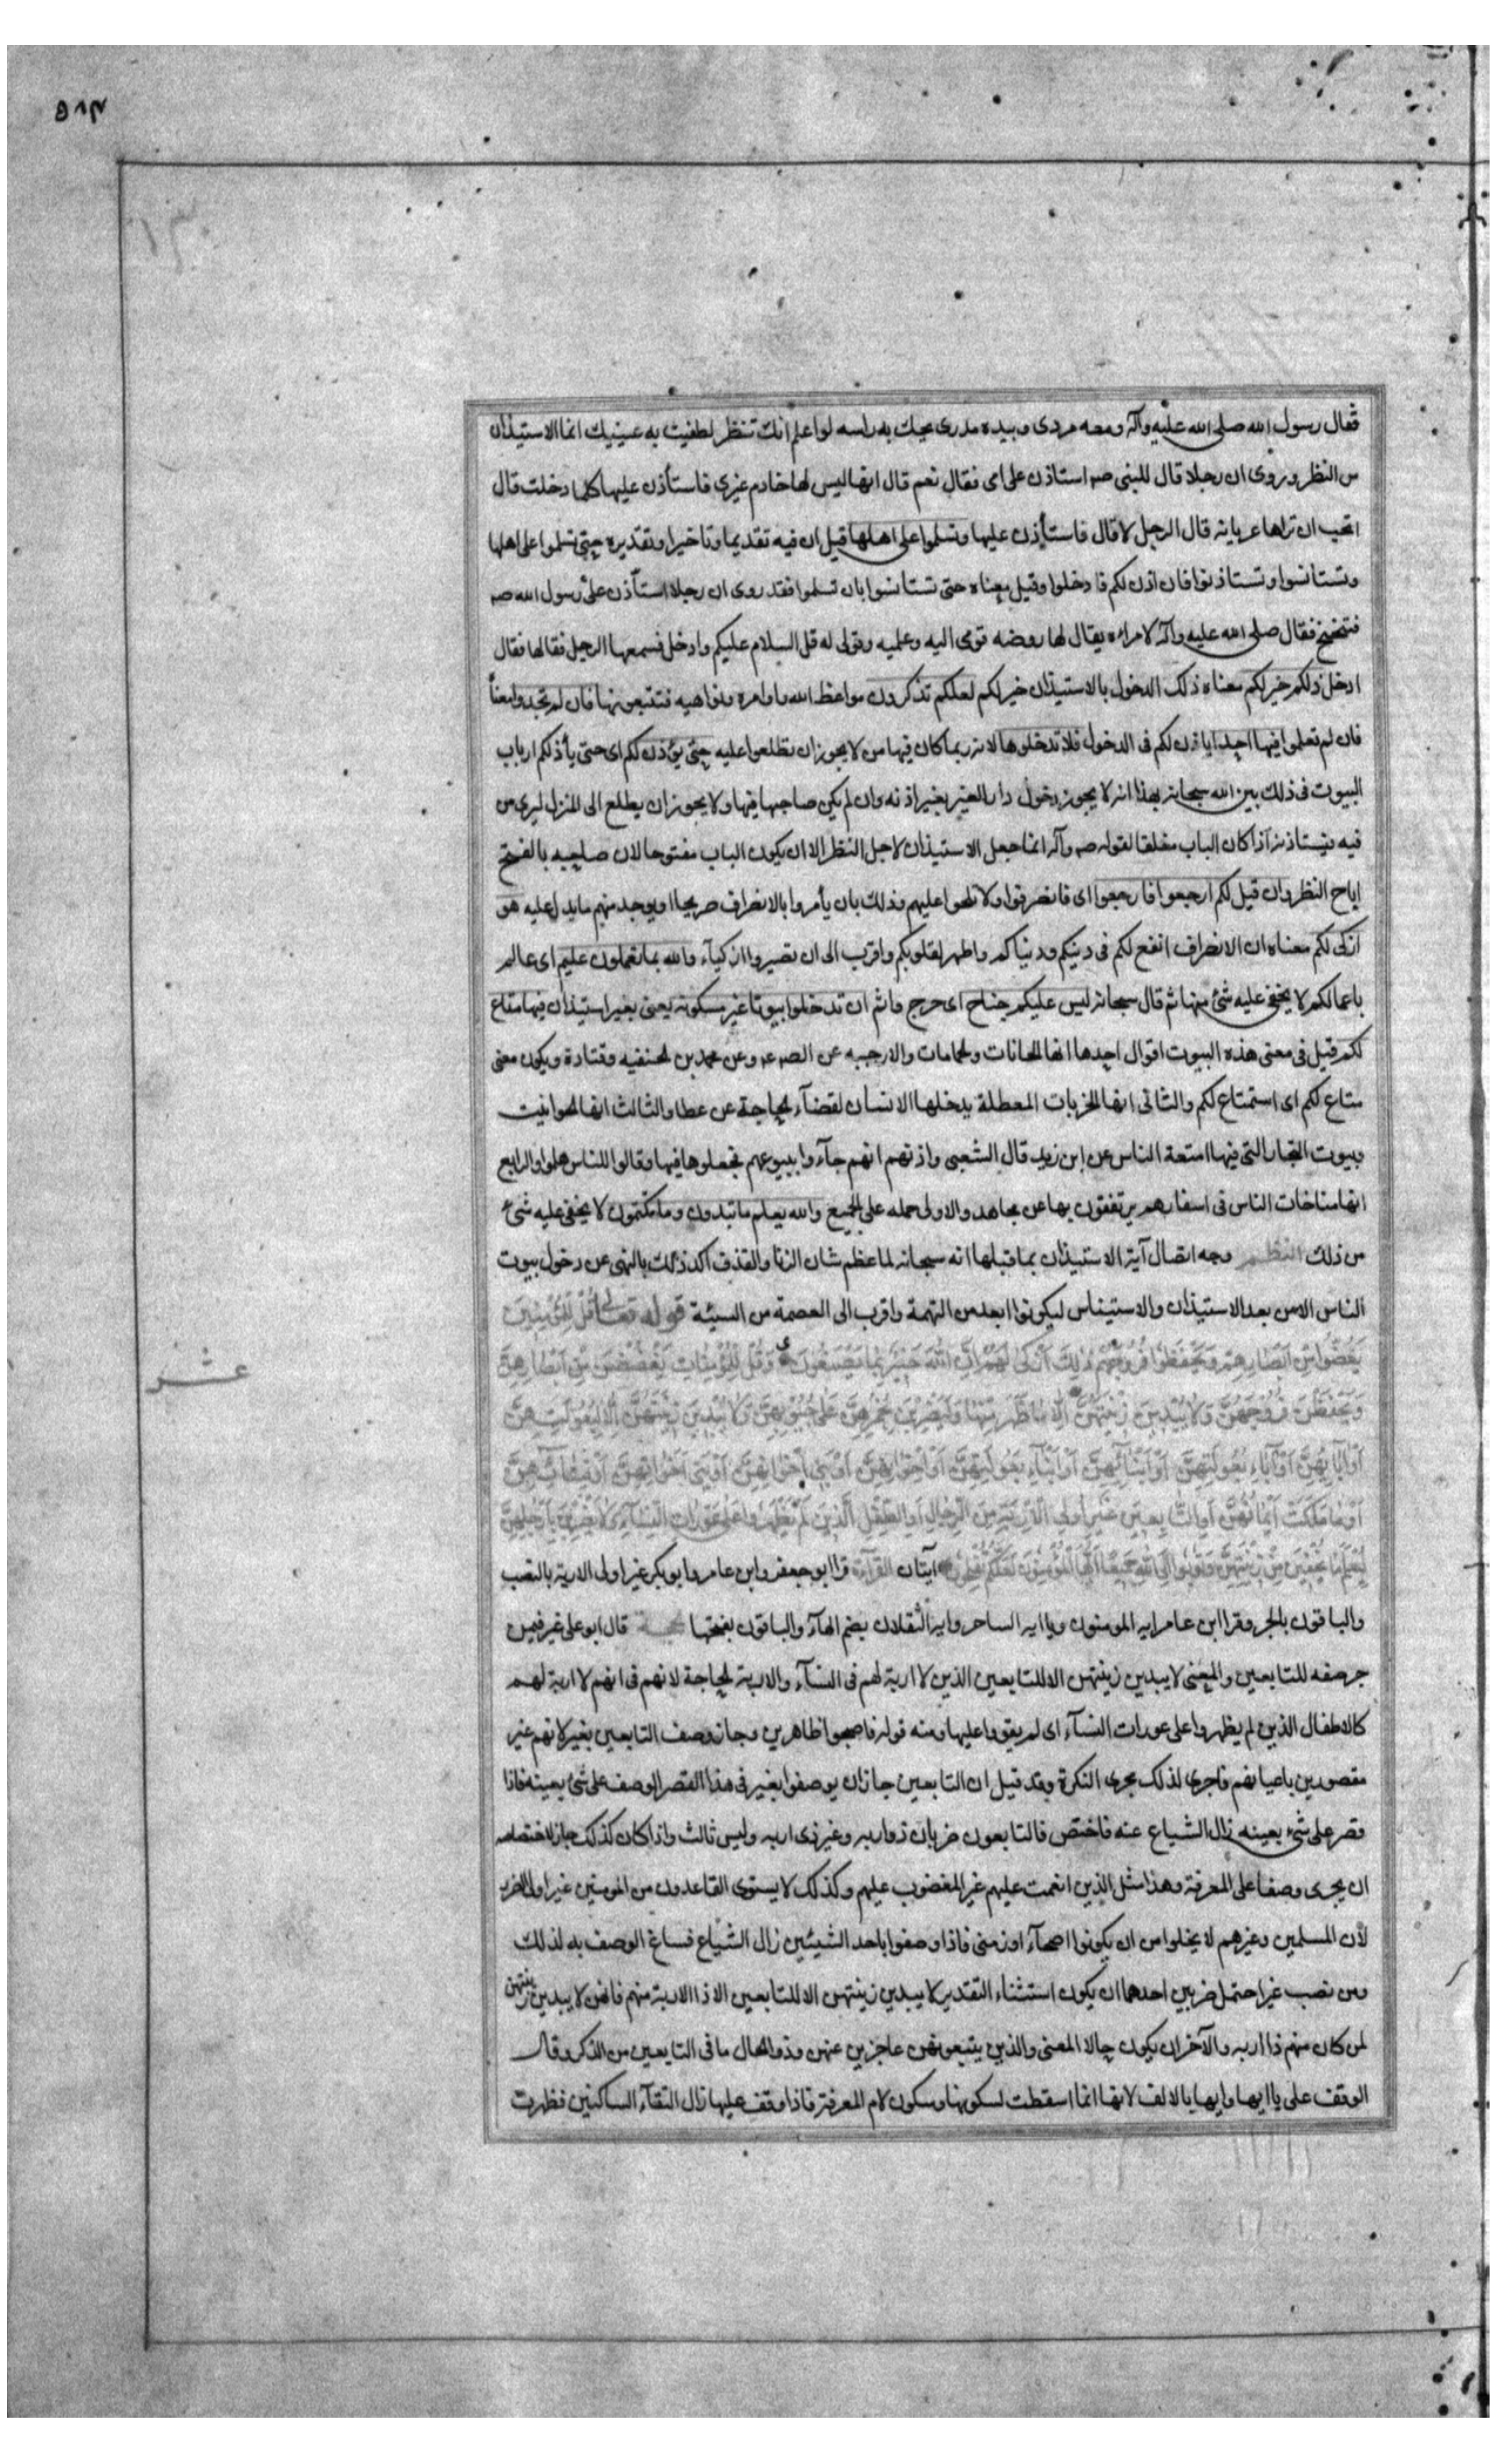 ٥٨٣
فقال رسول الله صلى الله عليه وآله ومعه مردى وبيده مدرى يحك به راسه لو اعلم انك تنظر لطفيت به عينيك انما الاستيذان
من النظر وروى ان رجلا قال للنبى صه استاذن على امى فقال نعم قال انها ليس لها خادم غيرى فاستأذن عليها كلما دخلت قال
اتحب ان تراها عريانة قال الرجل لا قال فاستأذن عليها وتسلموا على اهلها قيل ان فيه تقديما وتاخيرا وتقديره حتى تسلموا على اهلها
وتستانسوا وتستاذنوا فان اذن لكم فادخلوا وقيل معناه حتى تستانسوا بان تسلموا فقد روى ان رجلا استأذن على رسول الله صه
فتنحنح فقال صلى الله عليه وآله لامراه يقال لها روضه قومى اليه وعلميه وقولى له قل السلام عليكم وادخل فسمعها الرجل فقالها فقال
ادخل ذلكم خير لكم معناه ذلك الدخول بالاستيذان خير لكم لعلكم تذكرون مواعظ الله واوامره ونواهيه فتتبعونها فان لم تجدوا معناً
فان لم تعلموا فيها احدا ياذن لكم فى الدخول فلا تدخلوها لانه ربما كان فيها من لا يجوز ان تطلعوا عليه حتى يؤذن لكم اى حتى يأذن لكم ارباب
البيوت فى ذلك بين الله سبحانه بهذا انه لا يجوز دخول دار الغير بغير اذنه وان لم يكن صاحبها فيها ولا يجوز ان يطلع الى المنزل ليرى من
فيه فيستاذنه اذا كان الباب مغلقا لقوله صه وآله انما جعل الاستيذان لاجل النظر الا ان يكون الباب مفتوحا لان صاحبه بالفتح
اباح النظر وان قيل لكم ارجعوا فارجعوا اى فانصرفوا ولا تلحوا عليهم وذلك بان يأمروا بالانصراف صريحا او يوجد منهم ما يدل عليه هو
ازكى لكم معناه ان الانصراف انفع لكم فى دينكم ودنياكم واطهر لقلوبكم واقرب الى ان تصيروا ازكيآء والله بما تعملون عليم اى عالم
باعمالكم لا يخفى عليه شئ منها ثم قال سبحانه ليس عليكم جناح اى حرج واثم ان تدخلوا بيوتا غير مسكونة يعنى بغير استيذان فيها متاع
لكم قيل فى معنى هذه البيوت اقوال احدها انها الحانات والحمامات والارحيه عن الصه عه وعن محمد بن الحنفيه وقتادة ويكون معنى
متاع لكم اى استمتاع لكم والثانى انها الخربات المعطلة يدخلها الانسان لقضآء الحاجة عن عطا والثالث انها الحوانيت
وبيوت التجار التى فيها امتعة الناس عن ابن زيد قال الشعبى واذنهم انهم جآءوا ببيوعهم فجعلوها فيها وقالوا للناس هلموا والرابع
انها مناخات الناس فى اسفارهم يرتفقون بها عن مجاهد والاولى حمله على الجميع والله يعلم ما تبدون وما تكتمون لا يخفى عليه شئ
من ذلك النظم وجه اتصال آية الاستيذان بما قبلها انه سبحانه لما عظم شان الزنا والقذف اكد ذلك بالنهى عن دخول بيوت
الناس الا من بعد الاستيذان والاستيناس ليكونوا ابعد من التهمة واقرب الى العصمة من السيئة قوله تعالى قُلْ لِلْمُؤْمِنِينَ
يَغُضُّوا مِنْ اَبْصَارِهِمْ وَيَحْفَظُوا فُرُوجَهُمْ ذٰلِكَ اَزْكٰى لَهُمْ اِنَّ اللهَ خَبِيرٌ بِمَا يَصْنَعُونَ وَقُلْ لِلْمُؤْمِنَاتِ يَغْضُضْنَ مِنْ اَبْصَارِهِنَّ
عشر
وَيَحْفَظْنَ فُرُوجَهُنَّ وَلَا يُبْدِينَ زِينَتَهُنَّ اِلَّا مَا ظَهَرَ مِنْهَا وَلْيَضْرِبْنَ بِخُمُرِهِنَّ عَلٰى جُيُوبِهِنَّ وَلَا يُبْدِينَ زِينَتَهُنَّ اِلَّا لِبُعُولَتِهِنَّ
اَوْ اٰبَائِهِنَّ اَوْ اٰبَاءِ بُعُولَتِهِنَّ اَوْ اَبْنَآئِهِنَّ اَوْ اَبْنَآءِ بُعُولَتِهِنَّ اَوْ اِخْوَانِهِنَّ اَوْ بَنِى اِخْوَانِهِنَّ اَوْ بَنِى اَخَوَاتِهِنَّ اَوْ نِسَائِهِنَّ
اَوْ مَا مَلَكَتْ اَيْمَانُهُنَّ اَوِ التَّابِعِينَ غَيْرِ اُولِى الْاِرْبَةِ مِنَ الرِّجَالِ اَوِ الطِّفْلِ الَّذِينَ لَمْ يَظْهَرُوا عَلٰى عَوْرَاتِ النِّسَآءِ وَلَا يَضْرِبْنَ بِاَرْجُلِهِنَّ
لِيُعْلَمَ مَا يُخْفِينَ مِنْ زِينَتِهِنَّ وَتُوبُوا اِلَى اللهِ جَمِيعًا اَيُّهَا الْمُؤْمِنُونَ لَعَلَّكُمْ تُفْلِحُونَ آيتان القرآءة قرا ابو جعفر وابن عامر وابو بكر غير اولى الاربة بالنصب
والباقون بالجر وقرا ابن عامر ايه المومنون ويا ايه الساحر وايه الثقلان بضم الهآء والباقون بفتحها الحجة قال ابو على غير فيمن
جر صفه للتابعين والمعنى لا يبدين زينتهن الا للتابعين الذين لا اربة لهم فى النسآء والاربة الحاجة لانهم فى انهم لا اربة لهم
كالاطفال الذين لم يظهروا على عورات النسآء اى لم يقووا عليها ومنه قوله فاصبحوا ظاهرين وجاز وصف التابعين بغير لانهم غير
مقصودين باعيانهم فاجرى لذلك مجرى النكرة وقد قيل ان التابعين جاز ان يوصفوا بغير فى هذا القصر الوصف على شئ بعينه فاذا
قصر على شئ بعينه زال الشياع عنه فاختص فالتابعون ضربان ذو اربه وغير ذى اربه وليس ثالث واذا كان كذلك جاز لاختصاصه
ان يجرى وصفا على المعرفة وهذا مثل الذين انعمت عليهم غير المغضوب عليهم وكذلك لا يستوى القاعدون من المومنين غير اولى الضرر
لأن المسلمين وغيرهم لا يخلوا من ان يكونوا اصحآء او زمنى فاذا وصفوا باحد الشيئين زال الشياع فساغ الوصف به لذلك
ومن نصب غير احتمل ضربين احدهما ان يكون استثناء التقدير لا يبدين زينتهن الا للتابعين الا ذا الاربة منهم فانهن لا يبدين زينتهن
لمن كان منهم ذا اربه والآخر ان يكون حالا المعنى والذين يتبعونهن عاجزين عنهن وذو الحال ما فى التابعين من الذكر وقال
الوقف على يا ايها وايها بالالف لانها انما اسقطت لسكونها وسكون لام المعرفة فاذا وقف عليها زال التقآء الساكنين فظهرت